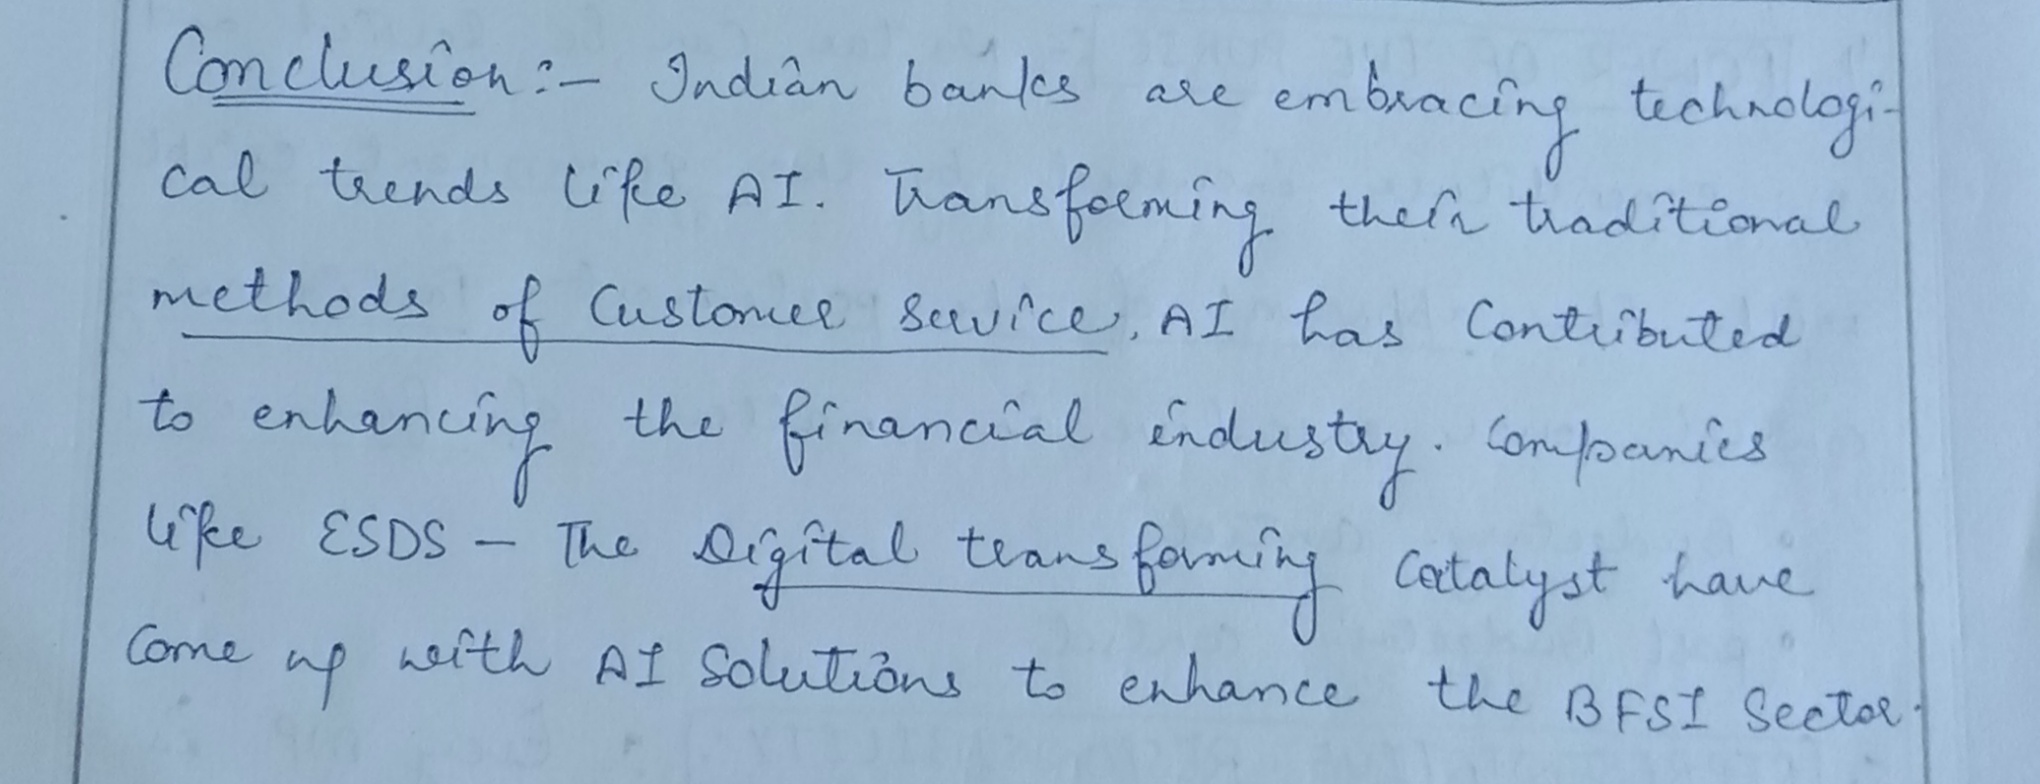 Conclusion:- Indian banks are embracing technologi-
cal trends like AI. Transforming their traditional
methods of Customer Service, AI has Contributed
to enhancing the financial industry. Companies
like ESDS - The Digital transforming Catalyst have
Come up with AI Solutions to enhance the BFSI Sector.